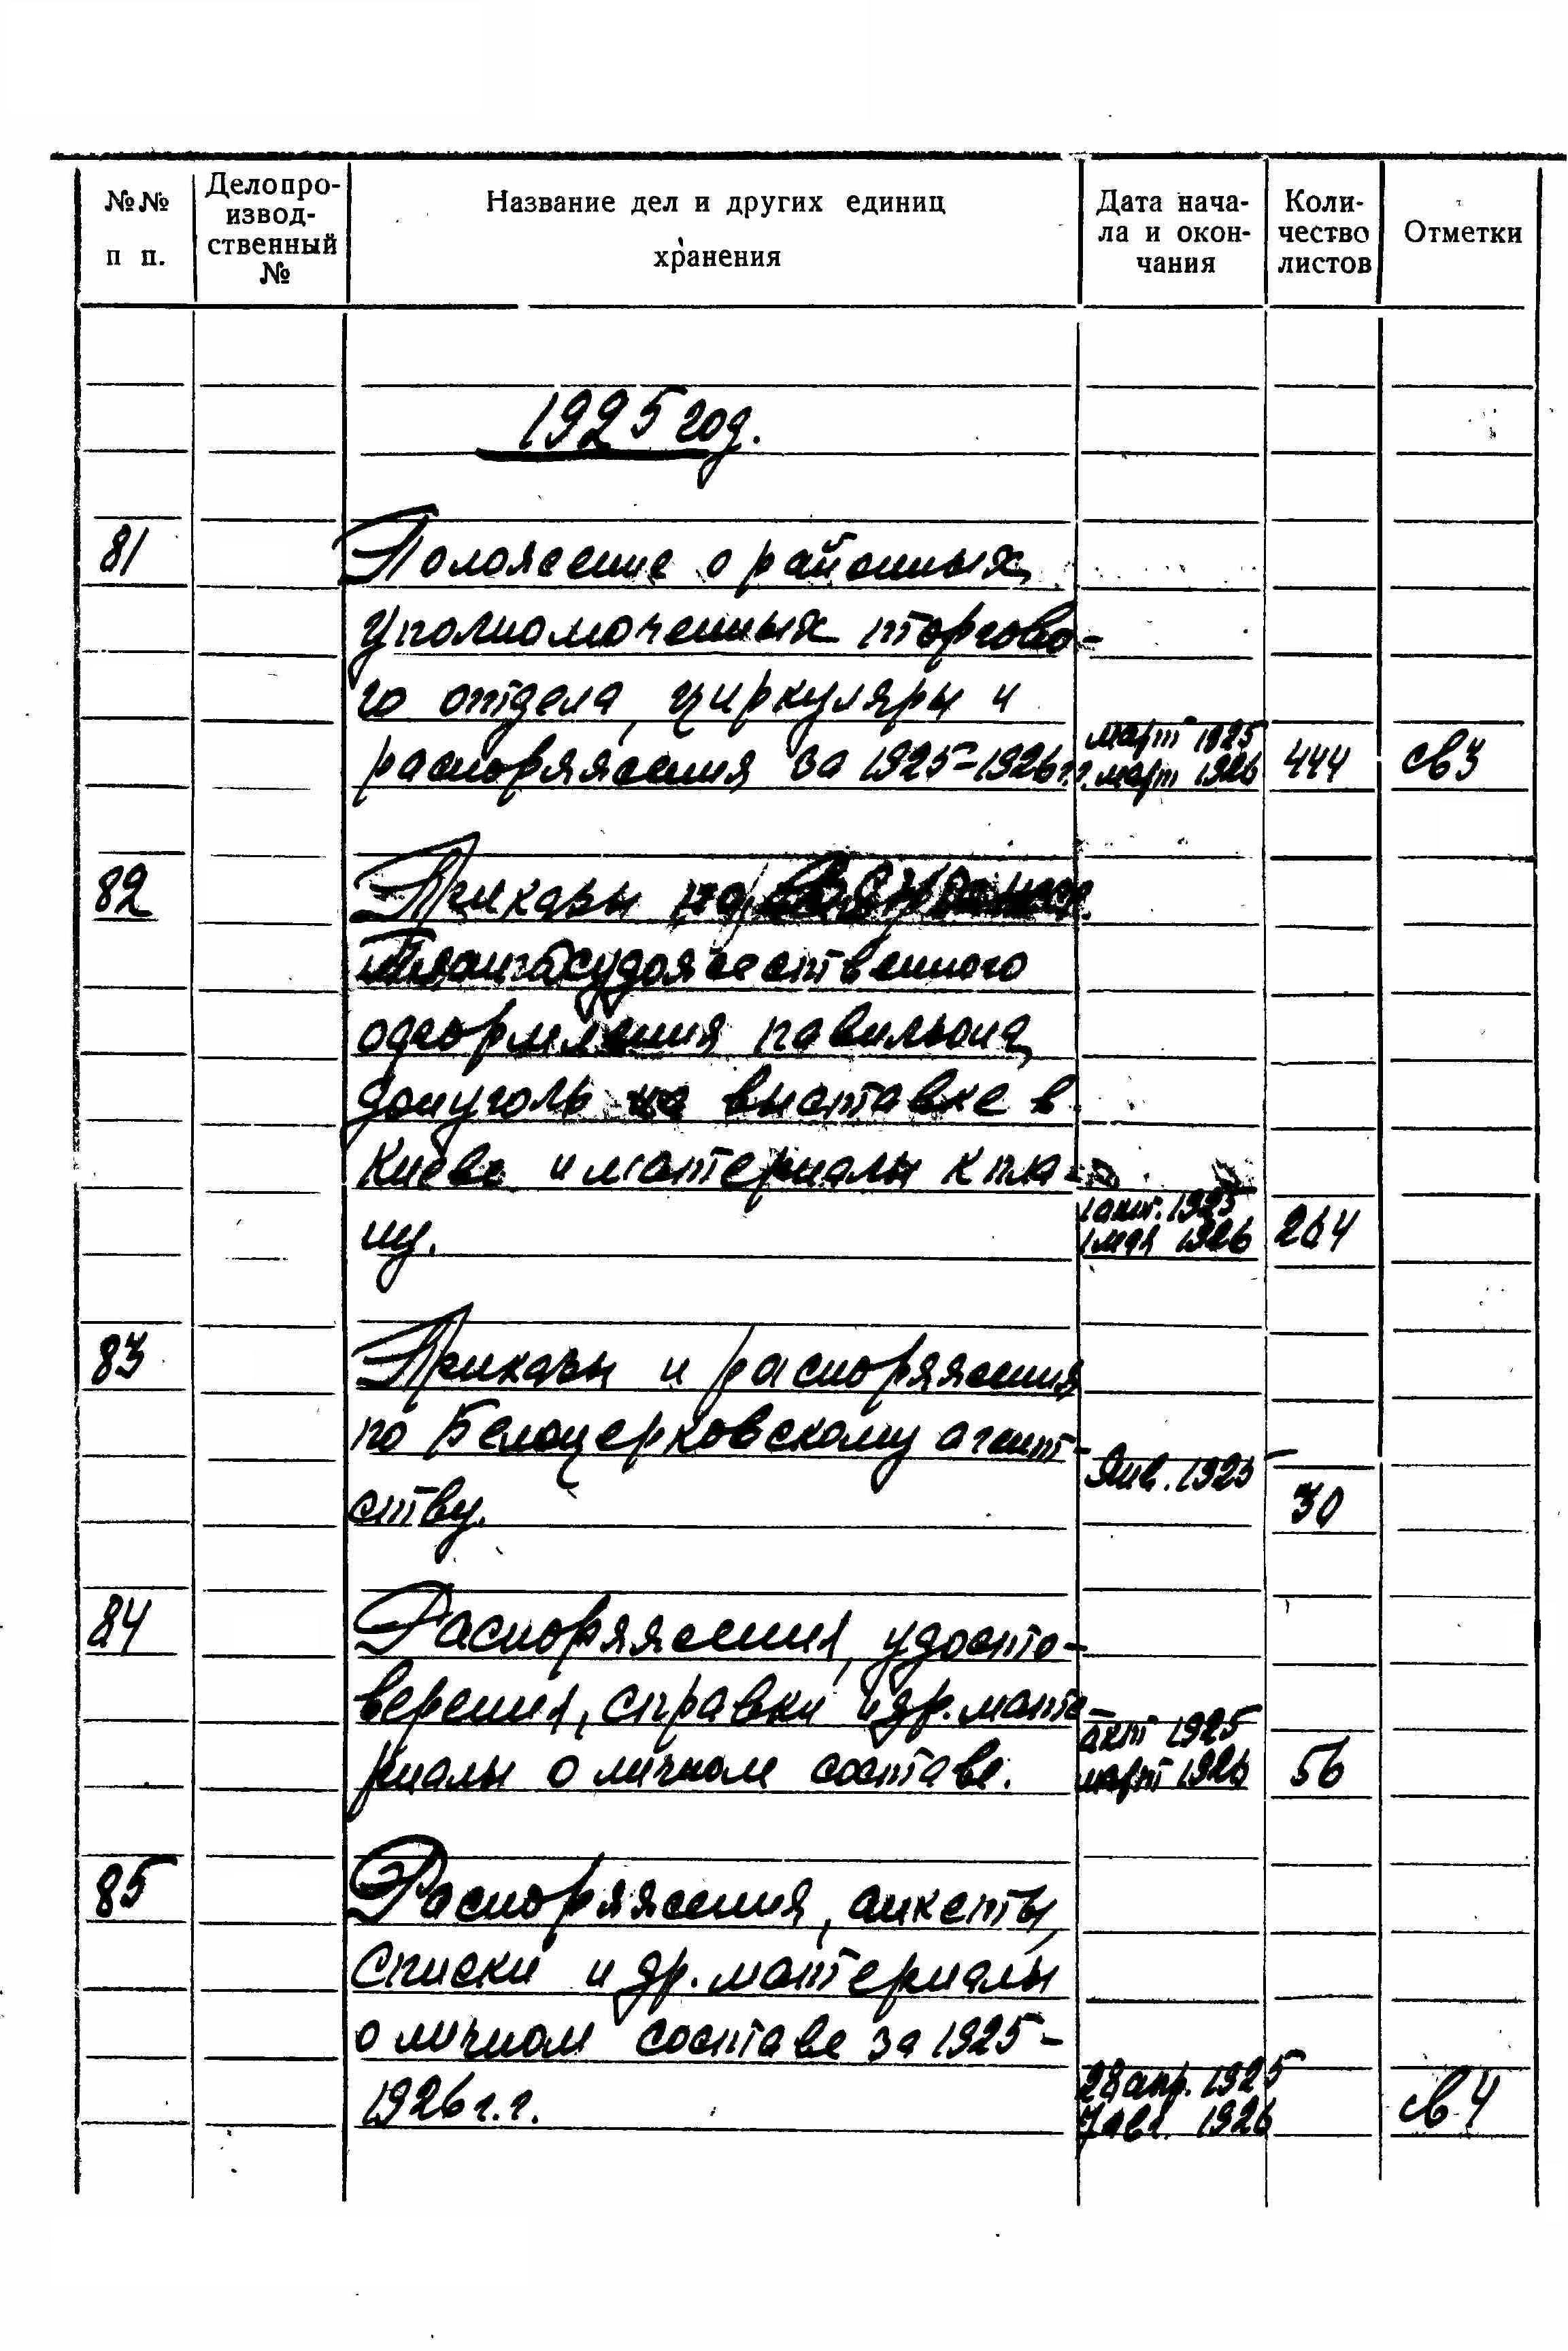 №№ п п.
Делопро-
извод-
ственный
№
Название дел и других единиц
хранения
Дата нача-
ла и окон-
чания
Коли-
чество
листов
Отметки
1925 год.
81
Положение о районных
уполномоченных торгово-
го отдела, циркуляры и
март 1925
распоряжения за 1925-1926 г.г. март 1926 444 св 3
82
Приказы
художественного
оформления павильона
Донуголь на выставке в
Киеве и материалы к пла-
1 окт. 1925
ну. 1 мая 1926 264
83
Приказы и распоряжения
по Белоцерковскому агент-
Янв. 1925
ству. 30
84
Распоряжения, удосто-
верения, справки и др. мате-
окт 1925
риалы о личном составе. март 1926 56
85
Распоряжения, анкеты,
списки и др. материалы
о личном составе за 1925-
28 апр. 1925
1926 г.г. 7 авг. 1926 св 4